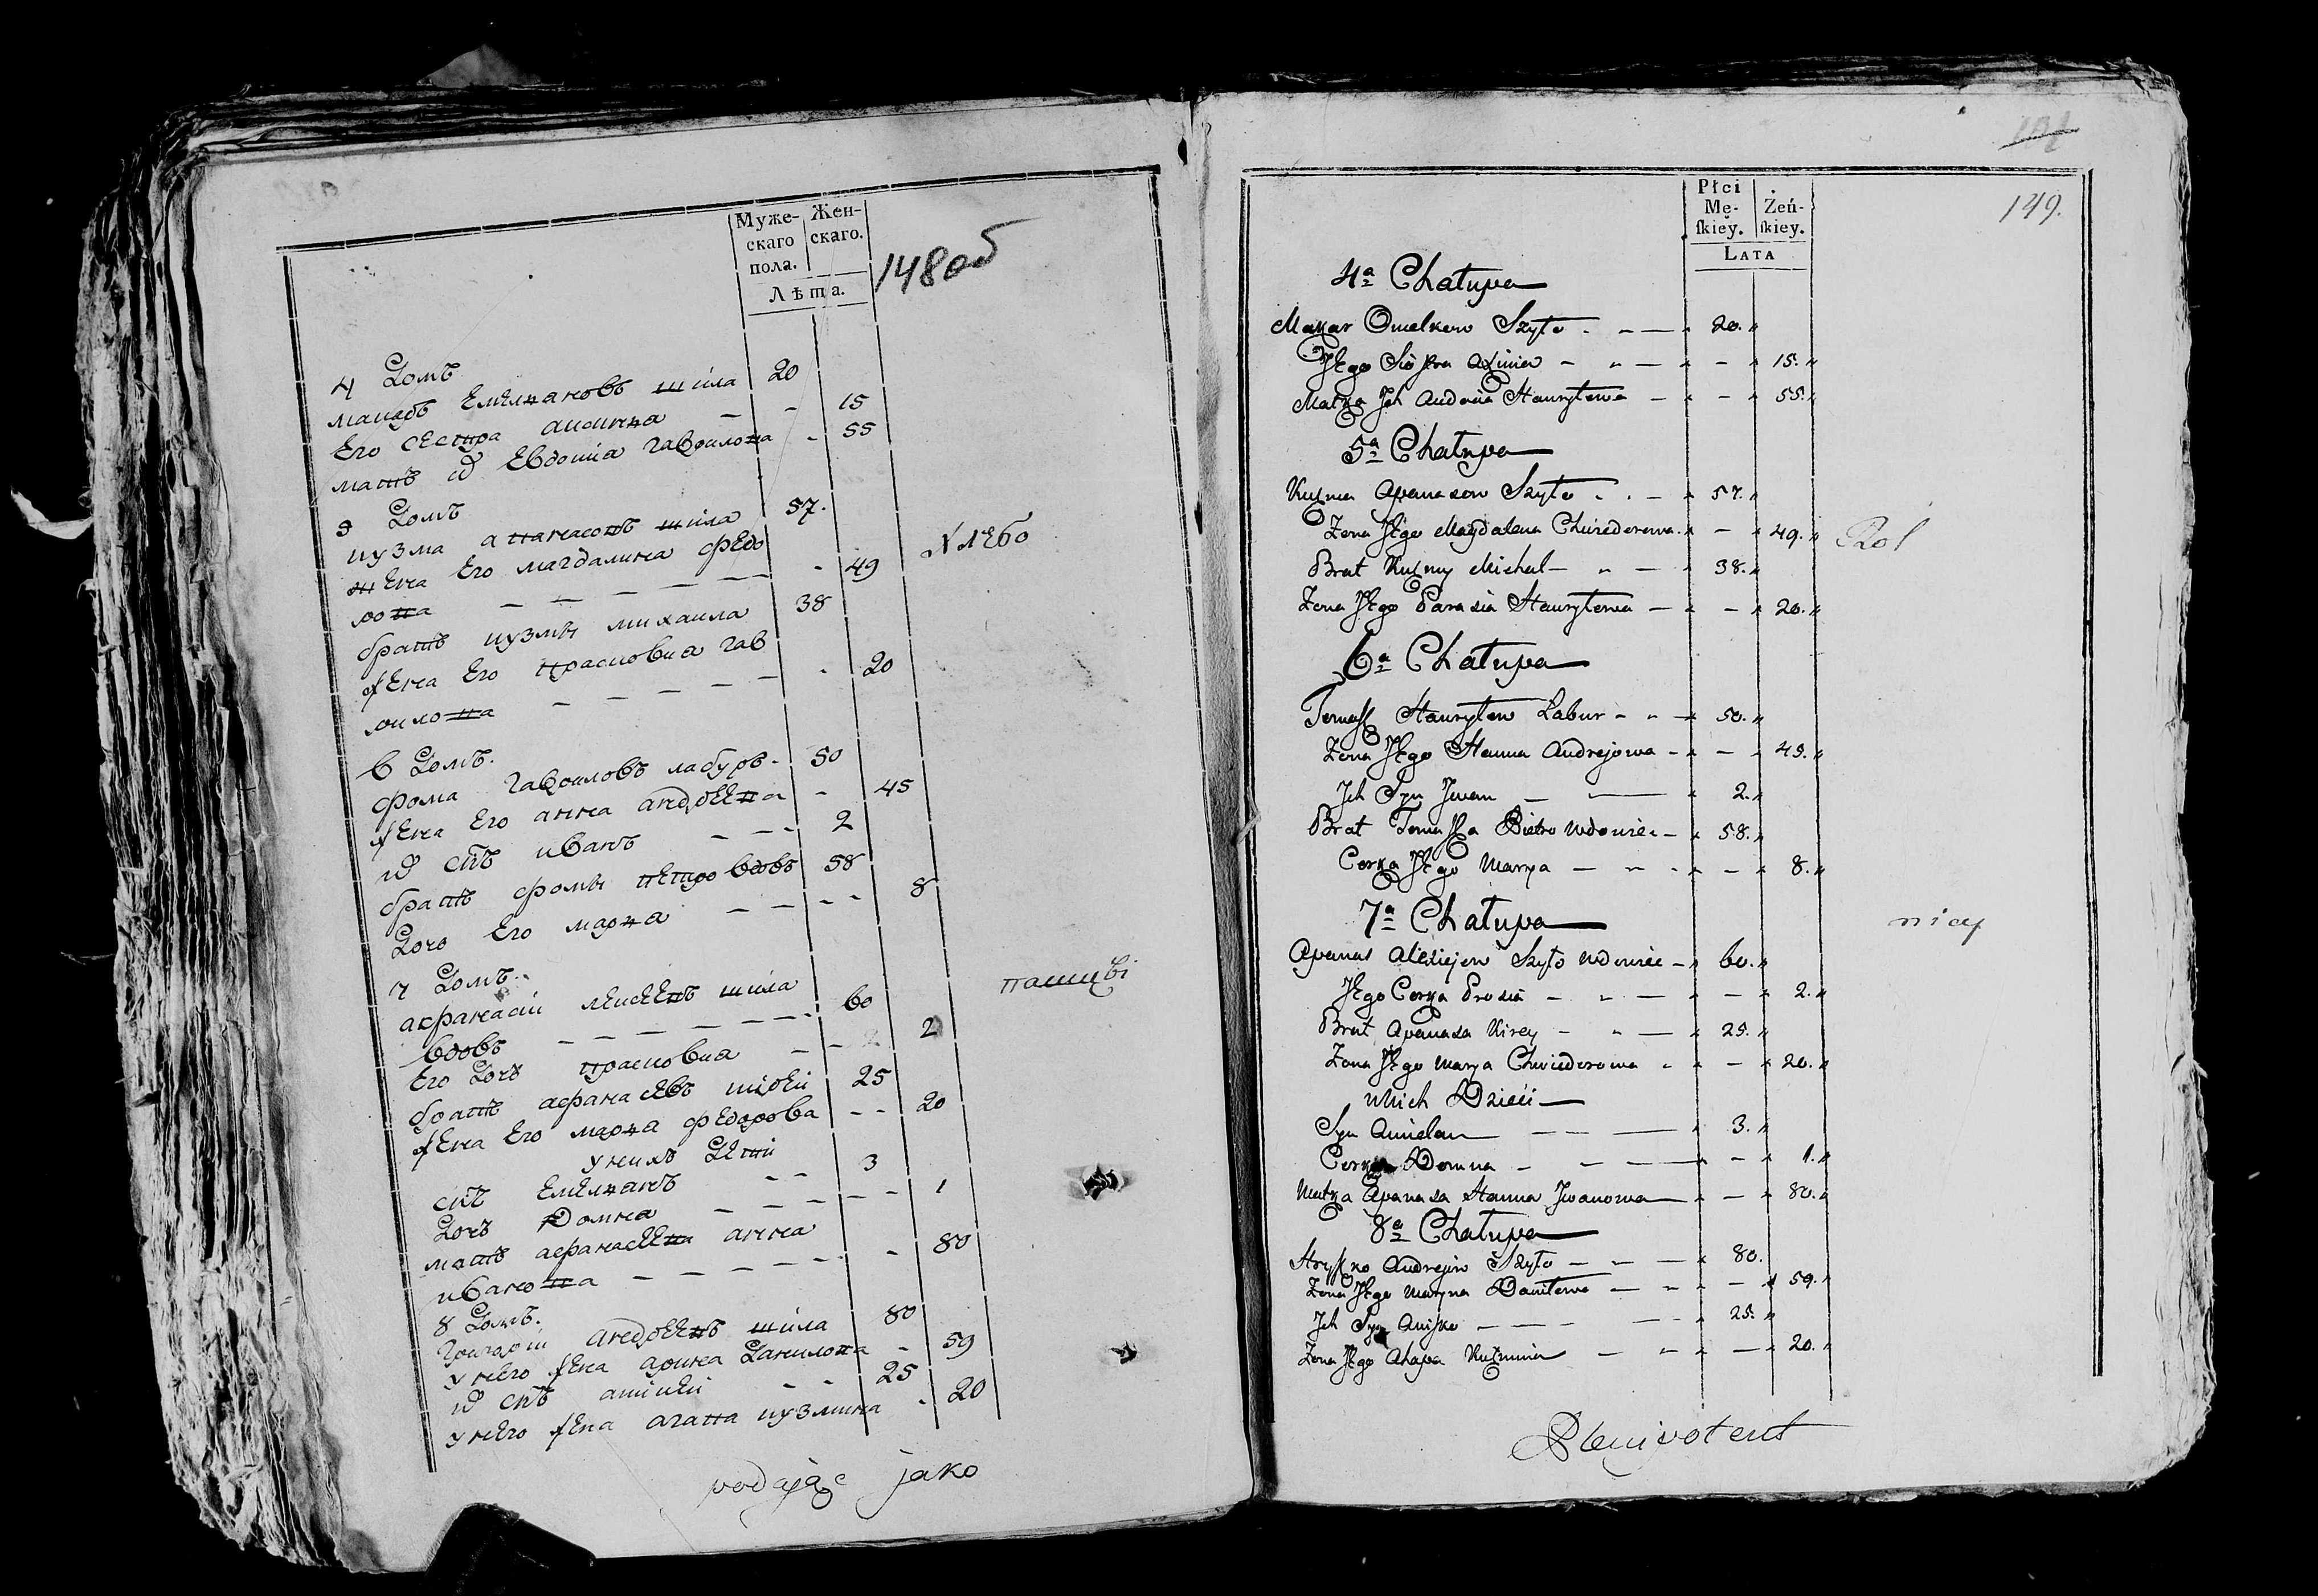 Муже-
скаго
пола.
Жен-
скаго.
Лѣта.
148 об
4 Домъ
макаръ Емельяновъ шила 20
Его сестра аксинья — - 15
мать их Евдокiа гаврилова - 55
5 Домъ
кузма апанасовъ шила 57.
жена Его магдалина федо
рова — — — — — - 49
хлебо
братъ кузмы михаила 38
жена Его прасковиа гав
рилова — — — — - 20
6 Домъ.
фома гавриловъ лабуръ - 50
жена Его анна андреева - 45
их снъ иванъ — — - 2
братъ фомы петро вдовъ 58
Дочь Его марья — — - - 8
7 Домъ.
афанасiй лексеевъ шила
вдовъ — — — — — - 60
пашцвi
Его Дочь прасковиа — — 2
братъ афанасевъ кирей 25
жена Его марья федорова - - 20
у них Дети
снъ Емельянъ - - 3
Дочь Домна — — — - 1
мать афанасеева анна
иванова — — — — — - 80
8 Домъ.
Григорiй андреевъ шила 80
у него жена арина Данилова - 59
их снъ аникей - - 25
у него жена агапа кузмина - 20
podając jako
149.
Płci
Mę-
skiey.
Żeń-
skiey.
LATA
4ª Chałupa
Makar Omelkow Szyło - — 20.
Jego Siostra Axinia — — - 15.
Matka Jch Audocia Hawryłowa — - 55.
5ª Chałupa
Kuzma Apanasow Szyło . . - 57.
Zona Jego Magdalena Chwiedorowa. - 49.
Rol
Brat Kuzmy Michal — — 38.
Zona Jego Parasia Hawryłowa — - 20.
6ª Chałupa
Tomasz Hawryłow Łabur - - 50.
Zona Jego Hanna Andrejowa - — 45.
Jch Syn Jwan — — 2.
Brat Tomasza Pietro Wdowiec — 58.
Corka Jego Marya — - - 8.
7ª Chałupa
nicy
Apanas Alexiejow Szyło Wdowiec — 60.
Jego Corka Prosia — - — - 2.
Brat Apanasa Kirey - - — 25.
Zona Jego Marya Chwiedorowa - — 20.
u Nich Dzieci —
Syn Amielan — — 3.
Corka Domna — — — - 1.
Matka Apanasa Hanna Jwanowa — — 80.
8ª Chałupa
Hryszko Andrejow Szyło — — — 80.
Zona Jego Maryna Daniłowa — - — 59.
Jch Syn Anisko — — — 25.
Zona Jego Ahapa Kuźmina — - — 20.
Plenipotent